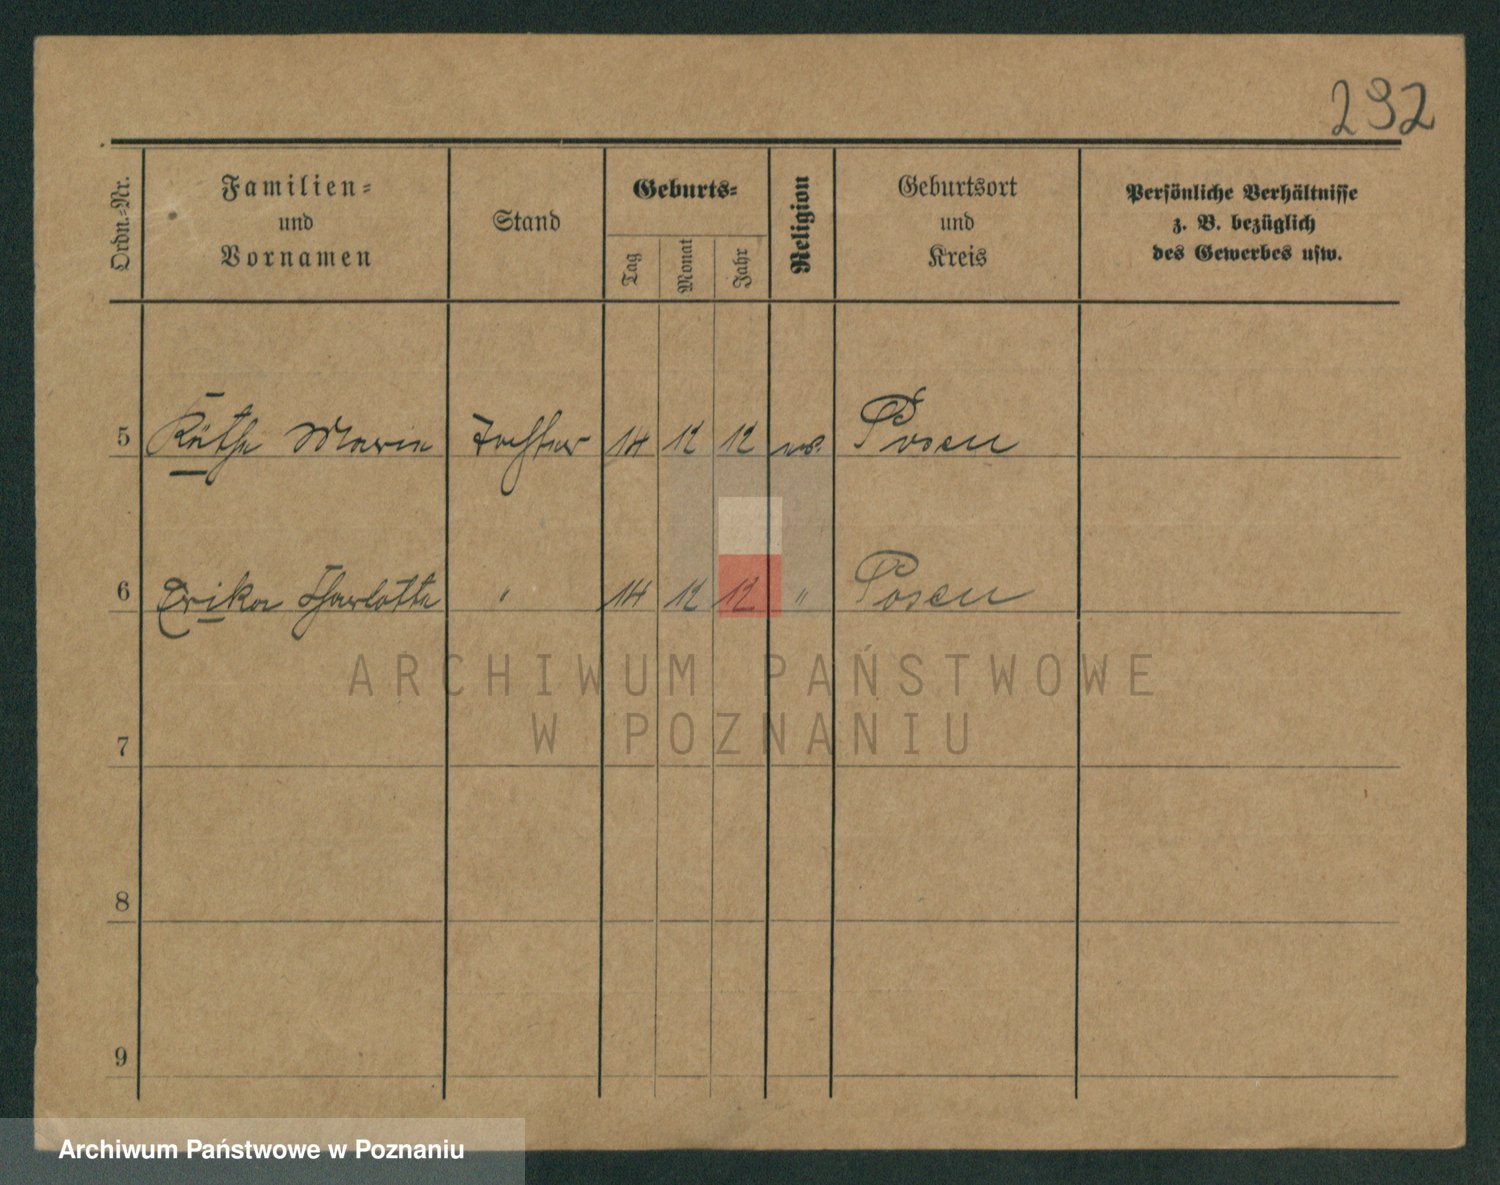 292
Ordn.-Nr.
Familien-
und
Vornamen
Stand
Geburts-
Tag
Monat
Jahr
Religion
Geburtsort
und
Kreis
Persönliche Verhältnisse
z. B. bezüglich
des Gewerbes usw.
5 Käthe Marie Tochter 14 12 12 ev. Posen
6 Erika Charlotte " 14 12 12 " Posen
ARCHIWUM PAŃSTWOWE
W POZNANIU
7
8
9
Archiwum Państwowe w Poznaniu